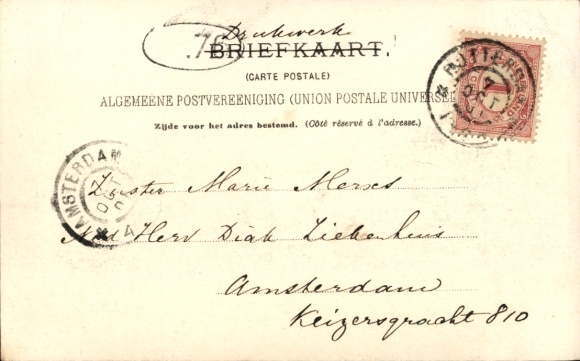 Drukwerk
.78
BRIEFKAART.
(CARTE POSTALE)
ALGEMEENE POSTVEREENIGING (UNION POSTALE UNIVERSE
Zijde voor het adres bestemd. (Côté réservé à l'adresse.)
ROTTERD
7
OCT
1
AMSTERDAM
OCT
A
Zuster Marie Merxs
Ned Herv Diak Ziekenhuis
Amsterdam
Keizersgracht 810